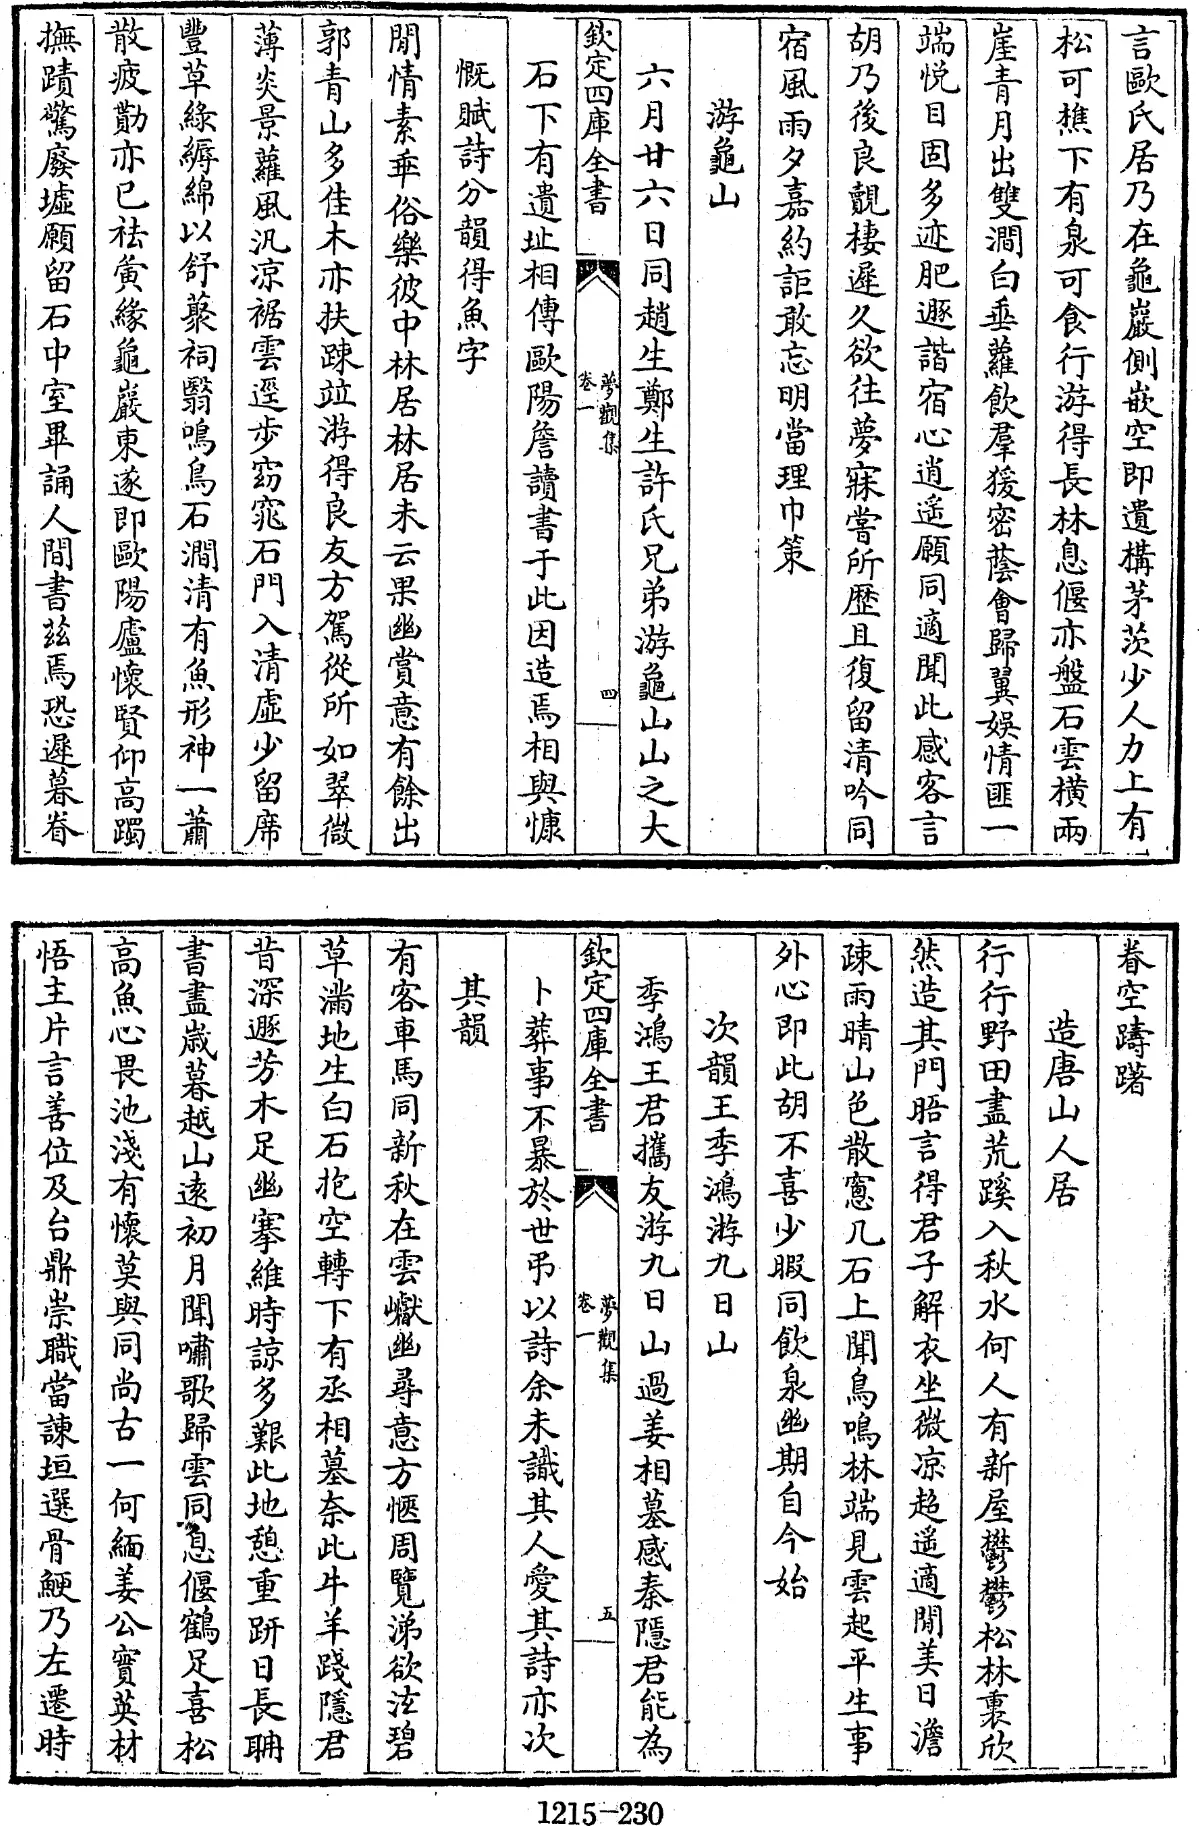 言歐氏居乃在龜巖側嵌空即遺構茅茨少人力上有
松可樵下有泉可食行游得長林息偃亦盤石雲横兩
崖青月出雙澗白垂蘿飲羣猨密蔭會歸翼娱情匪一
端悦目固多迹肥遯諧宿心逍遥願同適聞此感客言
胡乃後良覿棲遲久欲往夢寐嘗所歴且復留清吟同
宿風雨夕嘉約詎敢忘明當理巾策
游龜山
六月廿六日同趙生鄭生許氏兄弟游龜山山之大
欽定四庫全書
夢觀集
卷一
四
石下有遺址相傳歐陽詹讀書于此因造焉相與慷
慨賦詩分韻得魚字
閒情素乖俗樂彼中林居林居未云果幽賞意有餘出
郭青山多佳木亦扶踈竝游得良友方駕從所如翠微
薄炎景蘿風汎凉裾雲逕步窈窕石門入清虚少留席
豐草緑縟綿以舒藂祠翳鳴鳥石澗清有魚形神一蕭
散疲勩亦已祛夤緣龜巖東遂即歐陽廬懷賢仰高躅
撫蹟驚廢墟願留石中室畢誦人間書兹焉恐遲暮眷
眷空躊躇
造唐山人居
行行野田盡荒蹊入秋水何人有新屋鬱鬱松林裏欣
然造其門晤言得君子解衣坐微凉超遥適閒美日澹
踈雨晴山色散窻几石上聞鳥鳴林端見雲起平生事
外心即此胡不喜少暇同飲泉幽期自今始
次韻王季鴻游九日山
季鴻王君攜友游九日山過姜相墓感秦隱君能為
欽定四庫全書
夢觀集
卷一
五
卜葬事不暴於世弔以詩余未識其人愛其詩亦次
其韻
有客車馬同新秋在雲巘幽尋意方愜周覽涕欲泫碧
草滿地生白石抱空轉下有丞相墓奈此牛羊踐隱君
昔深遯芳木足幽搴維時諒多艱此地憩重趼日長聃
書盡嵗暮越山遠初月聞嘯歌歸雲同息偃鶴足喜松
高魚心畏池淺有懷莫與同尚古一何緬姜公實英材
悟主片言善位及台鼎崇職當諫垣選骨鯁乃左遷時
1215-230